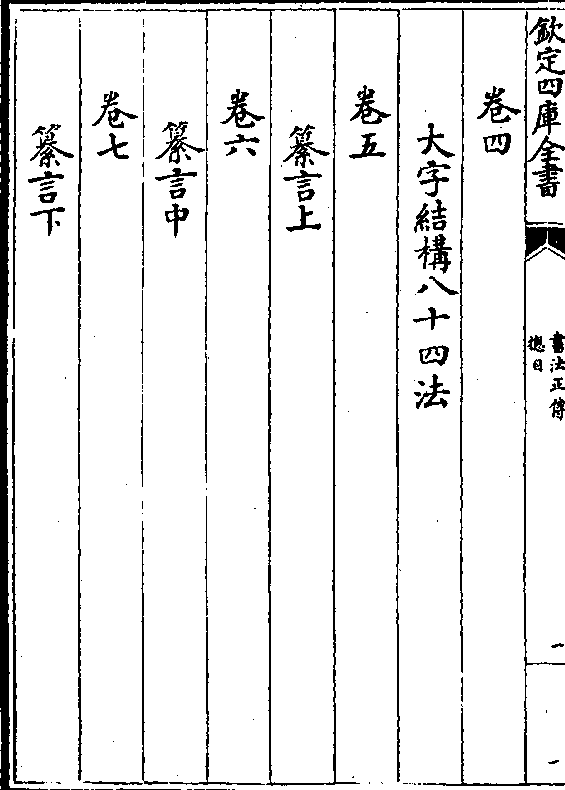 欽定四庫全書
書法正傳
總目
一
一
卷四
大字結構八十四法
卷五
纂言上
卷六
纂言中
卷七
纂言下